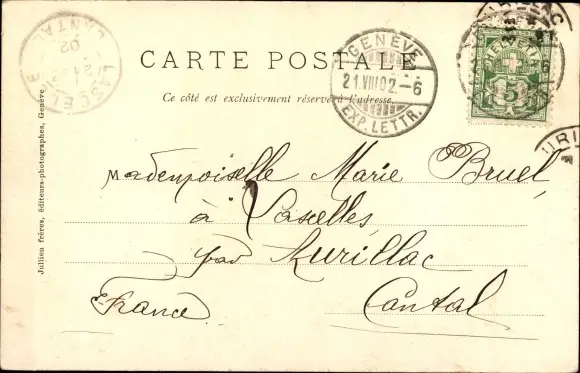 CARTE POSTALE
Ce côté est exclusivement réservé à l'adresse.
GENÈVE
21.VIII.02.-6
EXP. LETTR.
LASCELLE
CANTAL
02
HELVETIA
5
AURILLAC
URIL
Mademoiselle Marie Bruel,
à Lascelles,
par Aurillac
Cantal
France
Jullien frères, éditeurs-photographes, Genève.